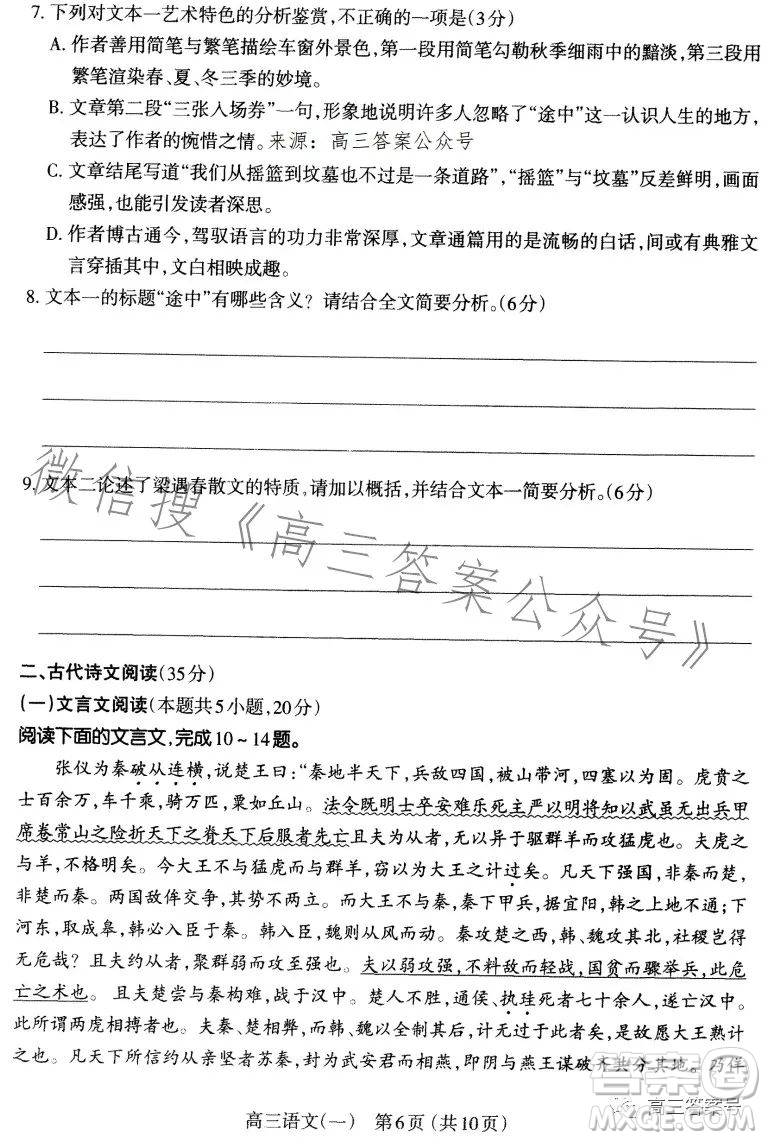 7. 下列对文本一艺术特色的分析鉴赏,不正确的一项是(3分)
A. 作者善用简笔与繁笔描绘车窗外景色,第一段用简笔勾勒秋季细雨中的黯淡,第三段用
繁笔渲染春、夏、冬三季的妙境。
B. 文章第二段“三张入场券”一句,形象地说明许多人忽略了“途中”这一认识人生的地方,
表达了作者的惋惜之情。来源：高三答案公众号
C. 文章结尾写道“我们从摇篮到坟墓也不过是一条道路”,“摇篮”与“坟墓”反差鲜明,画面
感强,也能引发读者深思。
D. 作者博古通今,驾驭语言的功力非常深厚,文章通篇用的是流畅的白话,间或有典雅文
言穿插其中,文白相映成趣。
8. 文本一的标题“途中”有哪些含义？请结合全文简要分析。(6分)
9. 文本二论述了梁遇春散文的特质。请加以概括,并结合文本一简要分析。(6分)
微信搜《高三答案公众号》
二、古代诗文阅读(35分)
(一)文言文阅读(本题共5小题,20分)
阅读下面的文言文,完成10～14题。
张仪为秦破从连横,说楚王曰:“秦地半天下,兵敌四国,被山带河,四塞以为固。虎贲之
士百余万,车千乘,骑万匹,粟如丘山。法令既明士卒安难乐死主严以明将知以武虽无出兵甲
席卷常山之险折天下之脊天下后服者先亡且夫为从者,无以异于驱群羊而攻猛虎也。夫虎之
与羊,不格明矣。今大王不与猛虎而与群羊,窃以为大王之计过矣。凡天下强国,非秦而楚,
非楚而秦。两国敌侔交争,其势不两立。而大王不与秦,秦下甲兵,据宜阳,韩之上地不通;下
河东,取成皋,韩必入臣于秦。韩入臣,魏则从风而动。秦攻楚之西,韩、魏攻其北,社稷岂得
无危哉？且夫约从者,聚群弱而攻至强也。夫以弱攻强,不料敌而轻战,国贫而骤举兵,此危
亡之术也。且夫楚尝与秦构难,战于汉中。楚人不胜,通侯、执珪死者七十余人,遂亡汉中。
此所谓两虎相搏者也。夫秦、楚相弊,而韩、魏以全制其后,计无过于此者矣,是故愿大王熟计
之也。凡天下所信约从亲坚者苏秦,封为武安君而相燕,即阴与燕王谋破齐共分其地。乃佯
高三语文(一) 第6页(共10页)
高三答案号
答案圈
MXQE.COM